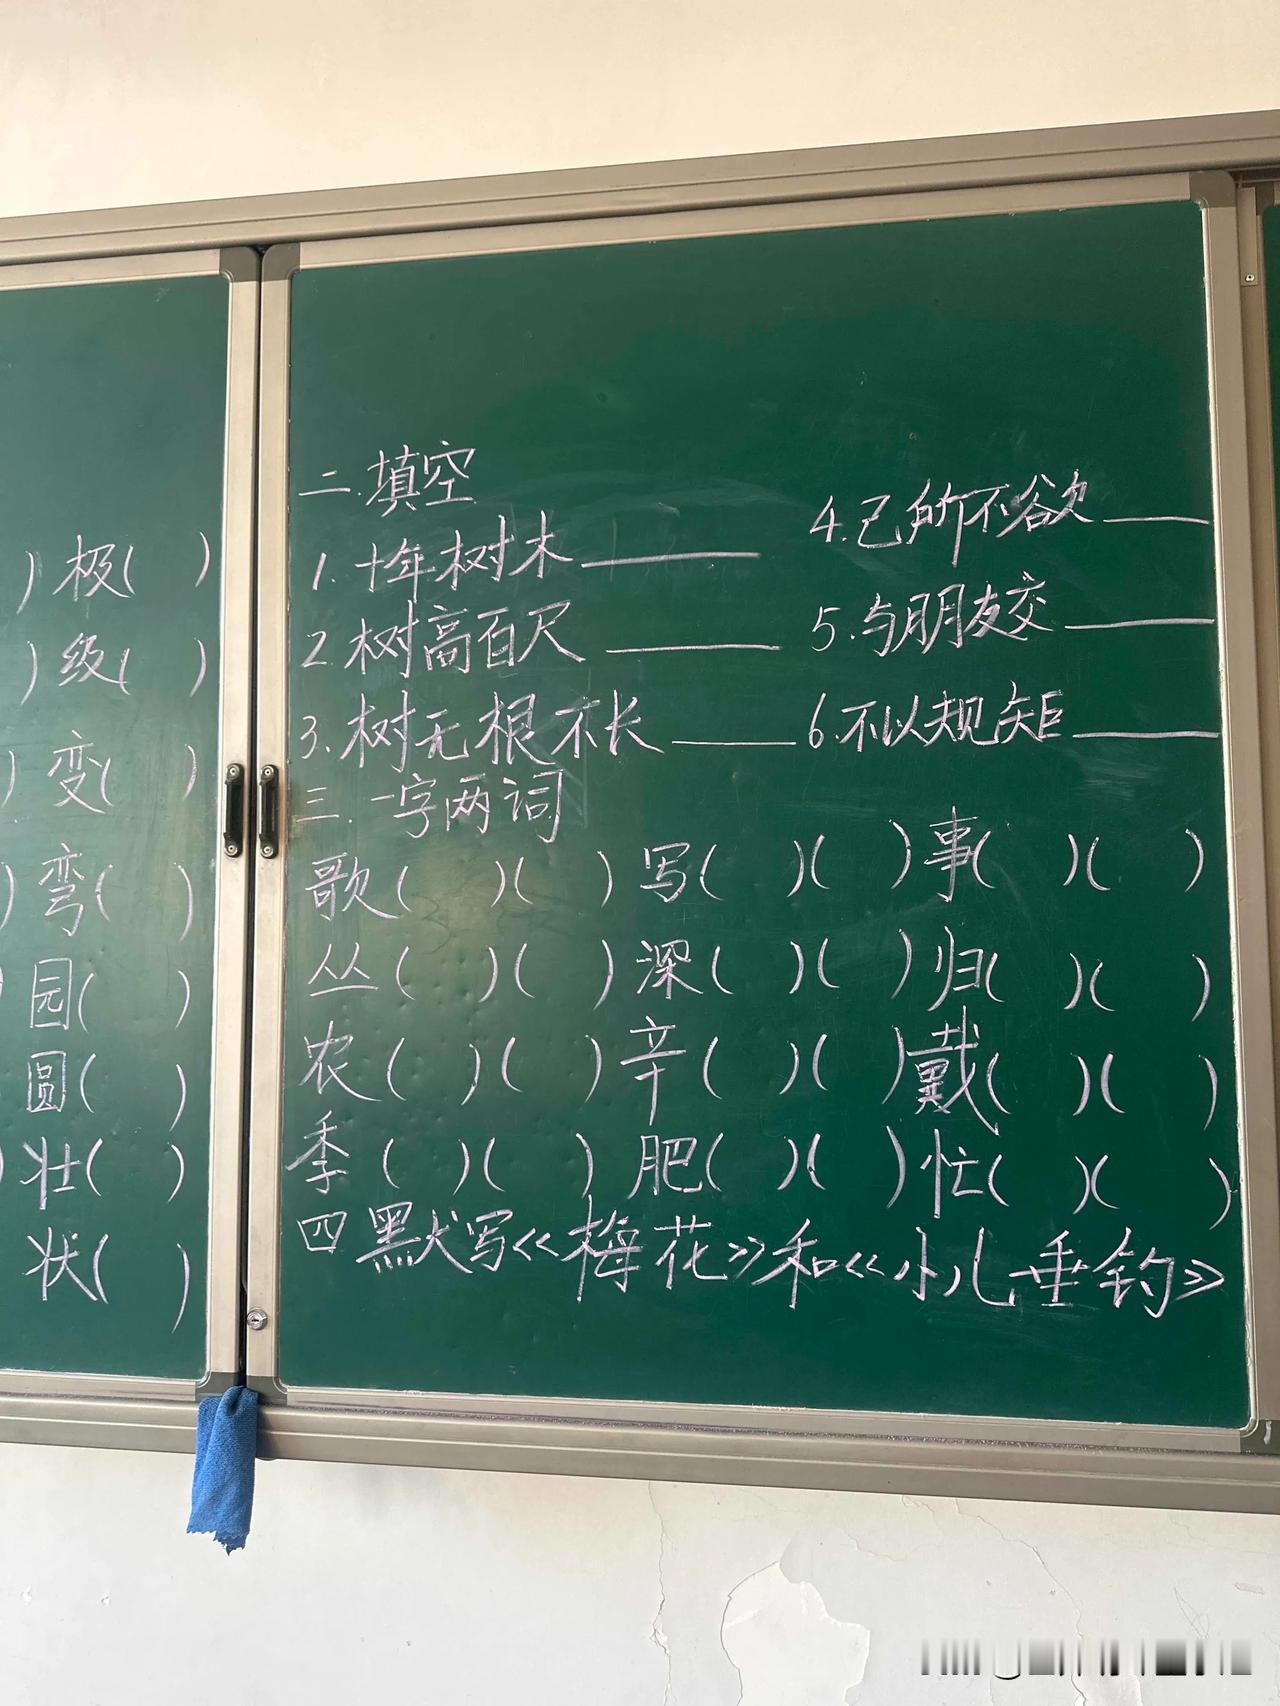 )极(  )
)级(  )
)变(  )
)弯(  )
园(  )
)圆(  )
)壮(  )
状(  )
二.填空
1.十年树木______
2.树高百尺______
3.树无根不长______
4.己所不欲______
5.与朋友交______
6.不以规矩______
三.一字两词
歌(  )(  )写(  )(  )事(  )(  )
丛(  )(  )深(  )(  )归(  )(  )
农(  )(  )辛(  )(  )戴(  )(  )
季(  )(  )肥(  )(  )忙(  )(  )
四 默写《梅花》和《小儿垂钓》